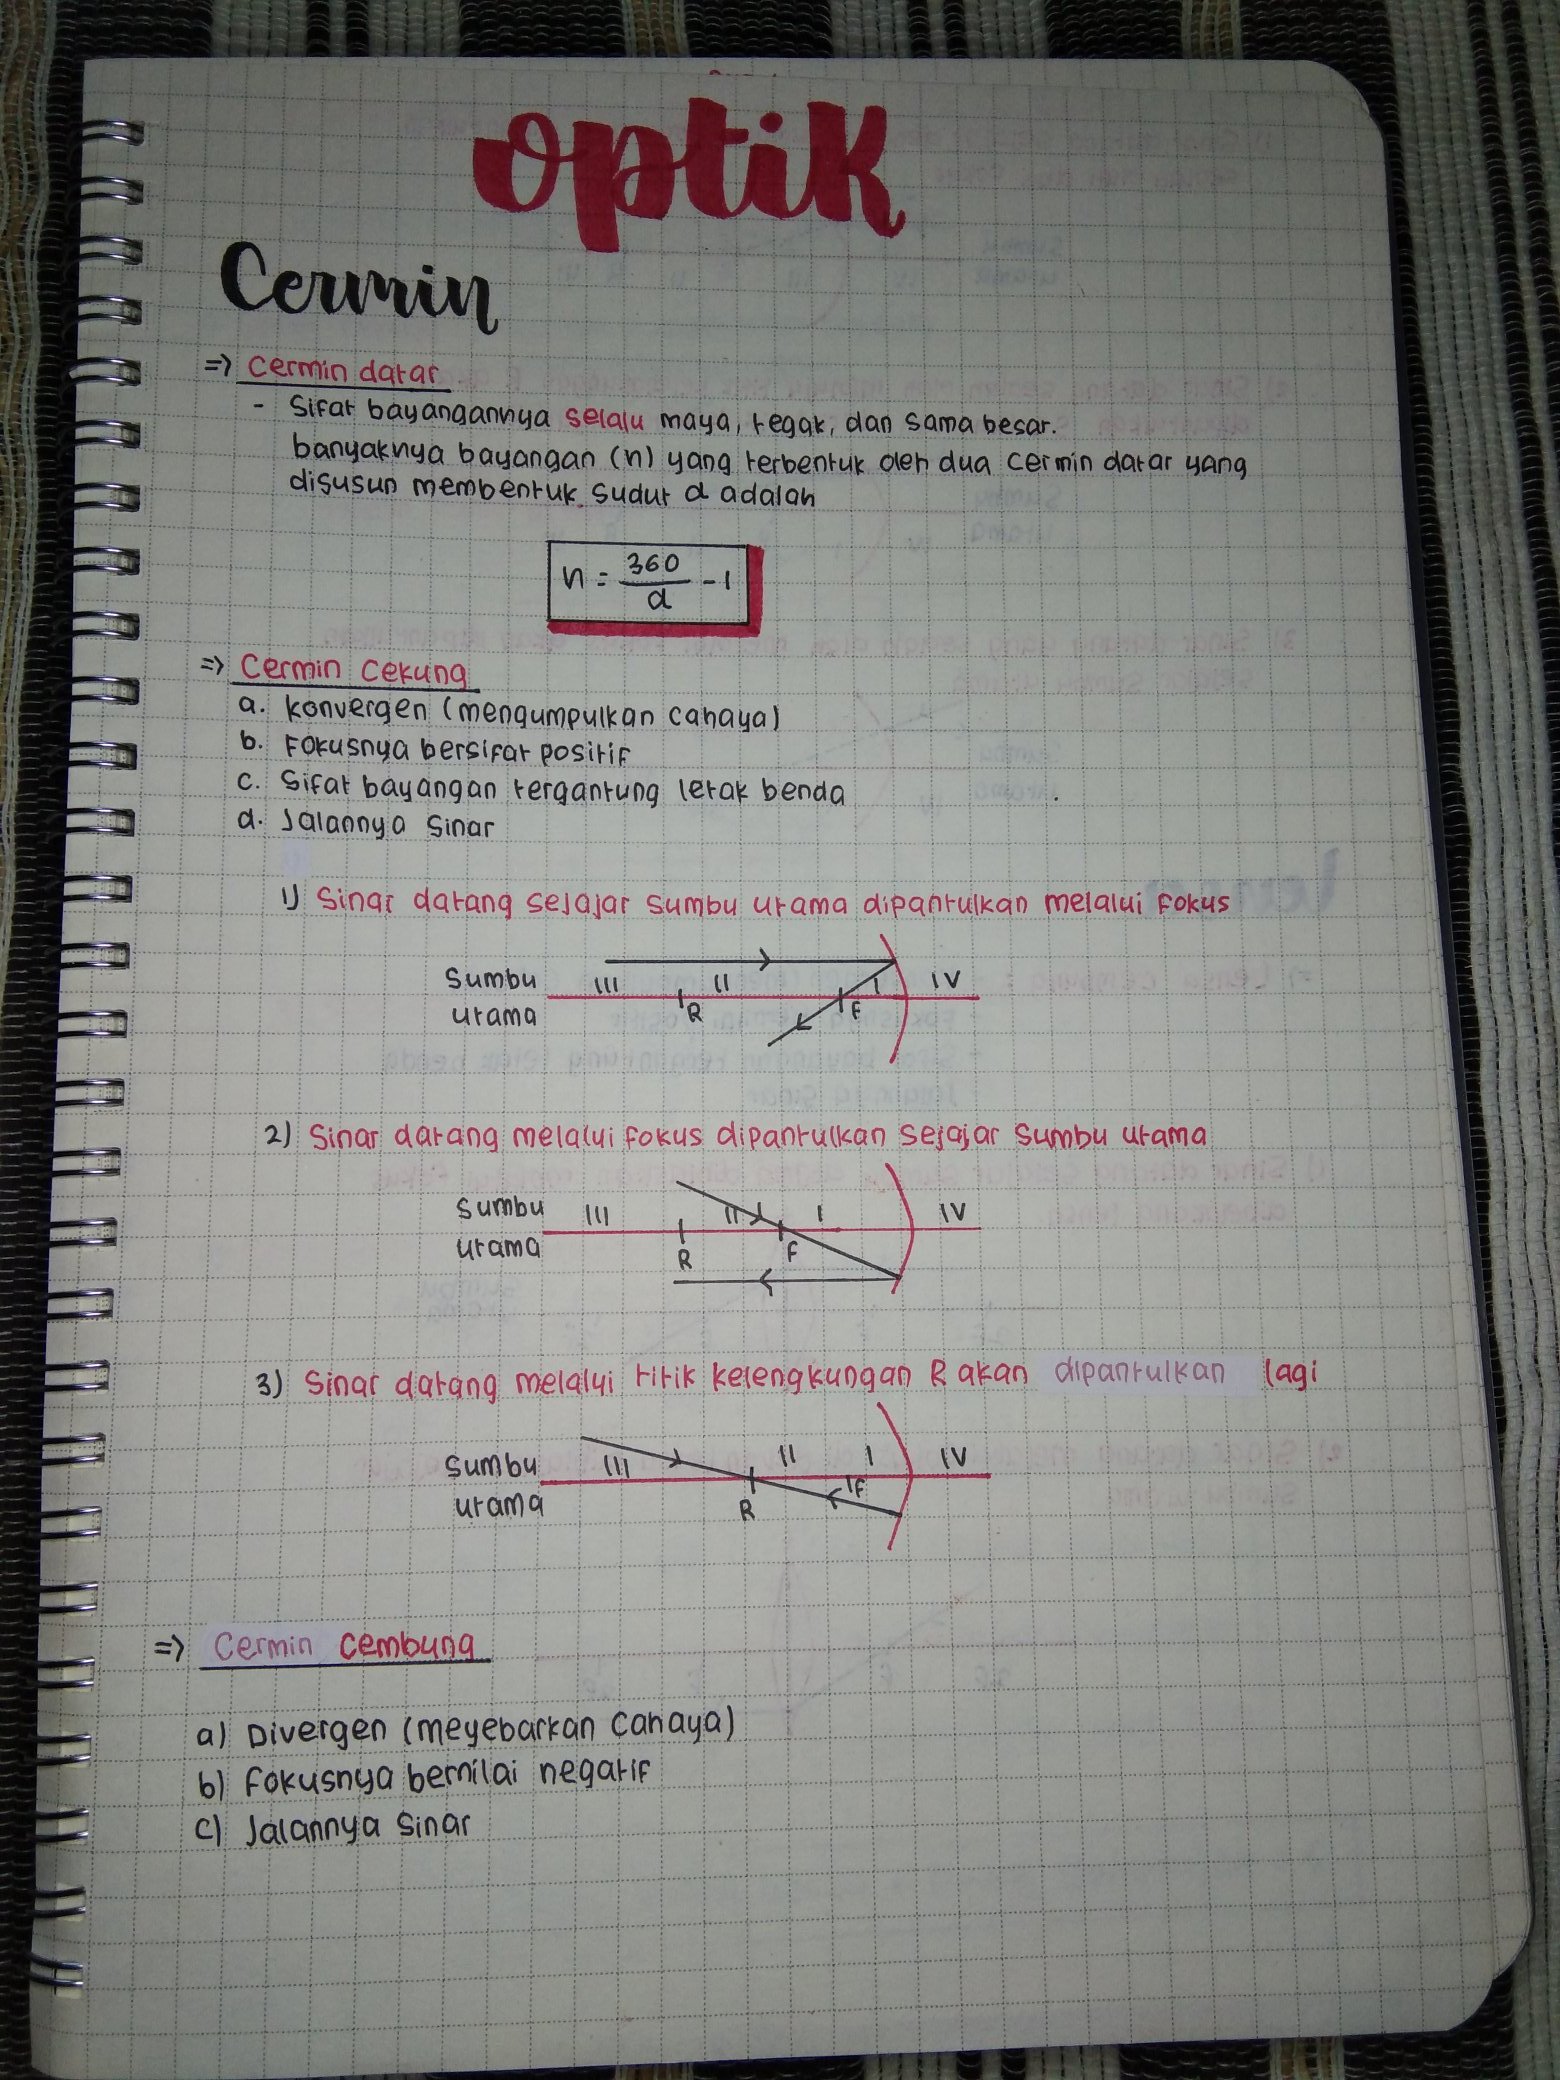 Optik
Cermin
=> Cermin datar
- Sifat bayangannya selalu maya, tegak, dan sama besar.
banyaknya bayangan (n) yang terbentuk oleh dua cermin datar yang
disusun membentuk sudut α adalah
n = 360/α - 1
=> Cermin Cekung
a. Konvergen (mengumpulkan cahaya)
b. Fokusnya bersifat positif
c. Sifat bayangan tergantung letak benda
d. Jalannya Sinar
1) Sinar datang sejajar sumbu utama dipantulkan melalui fokus
Sumbu utama III R II F I IV
2) Sinar datang melalui fokus dipantulkan sejajar sumbu utama
Sumbu utama III R II F I IV
3) Sinar datang melalui titik kelengkungan R akan dipantulkan lagi
Sumbu utama III R II F I IV
=> Cermin Cembung
a) Divergen (meyebarkan cahaya)
b) Fokusnya bernilai negatif
c) Jalannya Sinar